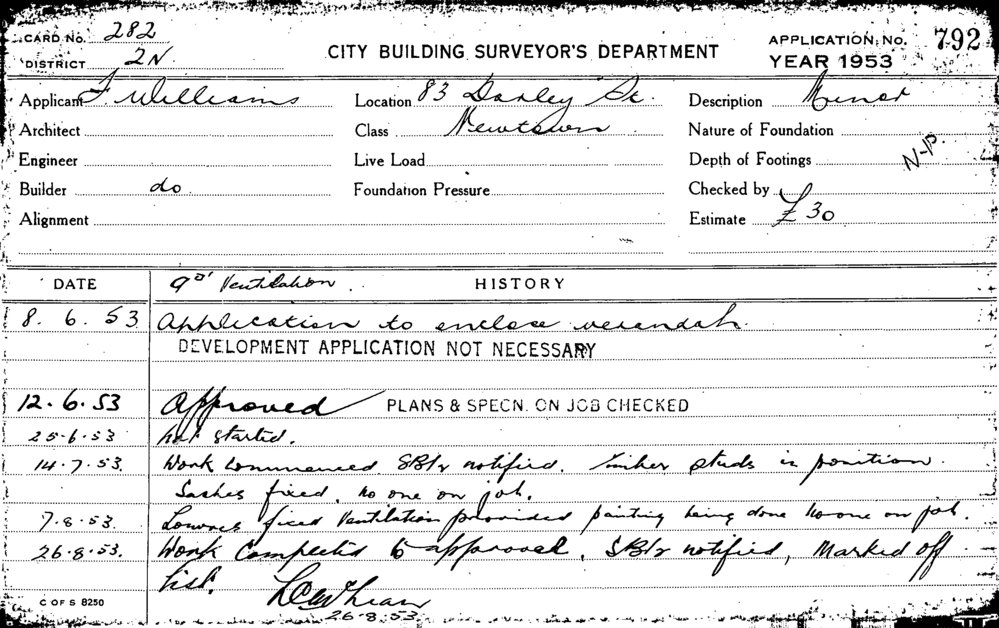 CARD No. 282
DISTRICT 2N
CITY BUILDING SURVEYOR'S DEPARTMENT
APPLICATION No. 792
YEAR 1953
Applicant F. Williams
Location 83 Darley St.
Description Minor
Architect
Class Newtown
Nature of Foundation
Engineer
Live Load
Depth of Footings
N-P
Builder do
Foundation Pressure
Checked by
Alignment
Estimate £30
DATE
Ventilation
HISTORY
8. 6. 53 Application to enclose verandah.
DEVELOPMENT APPLICATION NOT NECESSARY
12.6.53 Approved PLANS & SPECN. ON JOB CHECKED
25-6-53 Not started.
14.7.53. Work commenced. notified. Timber studs in position.
Sashes fixed. No one on job.
7.8.53. Louvres fixed Ventilation provided painting being done no one on job.
26.8.53. Work Completed to approval. notified, Marked off
list.
26-8-53
C OF S 8250